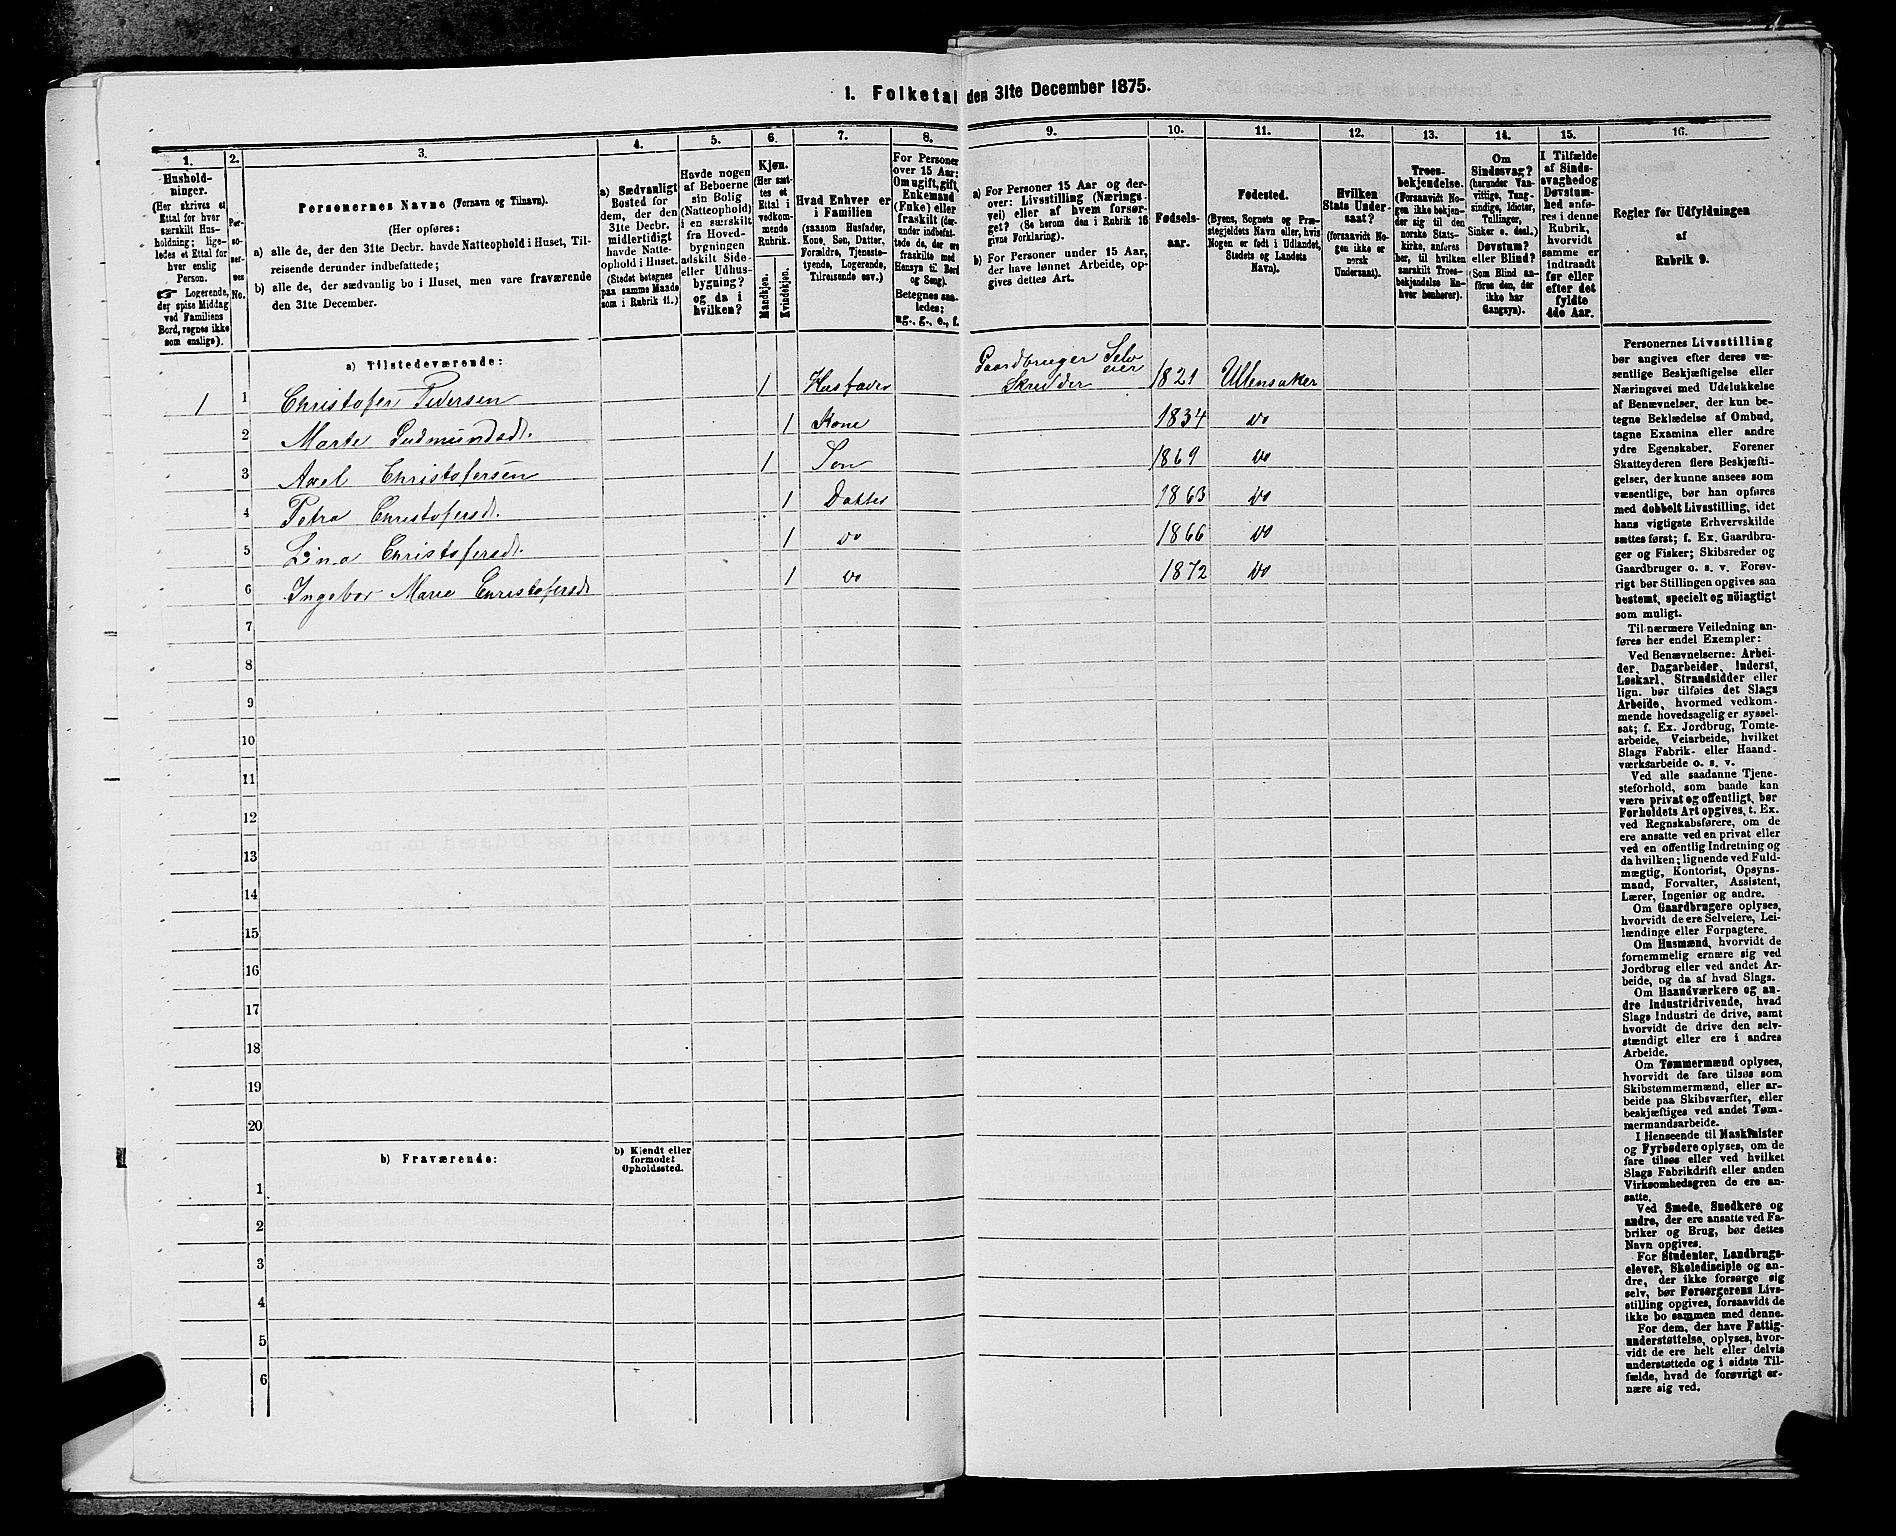 1. Folketal den 31te December 1875.
1.
Hushold-
ninger.
(Her skrives et
Ettal for hver
særskilt Hus-
holdning; lige-
ledes et Ettal for
hver enslig
Person.
☞ Logerende,
der spise Middag
ved Familiens
Bord, regnes ikke
som enslige).
2.
Per-
so-
ner-
nes
No.
3.
Personernes Navne (Fornavn og Tilnavn).
(Her opføres:
a) alle de, der den 31te Decbr. havde Natteophold i Huset, Til-
reisende derunder indbefattede;
b) alle de, der sædvanlig bo i Huset, men vare fraværende
den 31te December.
4.
a) Sædvanligt
Bosted for
dem, der den
31te Decbr.
midlertidigt
havde Natte-
ophold i Huset.
(Stedet betegnes
paa samme Maade
som i Rubrik 11.)
5.
Havde nogen
af Beboerne
sin Bolig
(Natteophold)
i en særskilt
fra Hoved-
bygningen
adskilt Side-
eller Udhus-
bygning?
og da i
hvilken?
6.
Kjøn.
(Her sæt-
tes et
Ettal i
vedkom-
mende
Rubrik.
Mandkjøn.
Kvindekjøn.
7.
Hvad Enhver er
i Familien
(saasom Husfader,
Kone, Søn, Datter,
Forældre, Tjeneste-
tyende, Logerende,
Tilreisende osv.)
8.
For Personer
over 15 Aar:
Om ugift, gift,
Enkemand
(Enke) eller
fraskilt (der-
under indbefat-
tede de, der ere
fraskilte med
Hensyn til Bord
og Seng).
Betegnes saa-
ledes:
ug., g., e., f.
9.
a) For Personer 15 Aar og der-
over: Livsstilling (Nærings-
vei) eller af hvem forsør-
get? (Se herom den i Rubrik 16
givne Forklaring).
b) For Personer under 15 Aar,
der have lønnet Arbeide, op-
gives dettes Art.
10.
Fødsels-
aar.
11.
Fødested.
(Byens, Sognets og Præ-
stegjeldets Navn eller, hvis
Nogen er født i Udlandet,
Stedets og Landets
Navn).
12.
Hvilken
Stats Under-
saat?
(forsaavidt No-
gen ikke er
norsk
Undersaat).
13.
Troes-
bekjendelse.
(Forsaavidt No-
gen ikke bekjen-
der sig til den
norske Stats-
kirke, anføres
her, til hvilken
særskilt Troes-
bekjendelse En-
hver henhører).
14.
Om
Sindssvag?
(herunder Van-
vittige, Tung-
sindige, Idioter,
Tullinger,
Sinker o. desl.)
Døvstum?
eller Blind?
(Som Blind an-
føres den, der
ikke har
Gangsyn).
15.
I Tilfælde
af Sinds-
svaghed og
Døvstum-
hed anfø-
res i denne
Rubrik,
hvorvidt
samme er
indtraadt
før eller
efter det
fyldte
4de Aar.
16.
Regler for Udfyldningen
af
Rubrik 9.
a) Tilstedeværende:
1 1 Christofer Pedersen 1 Husfader Gaardbruger Selveier Skrædder 1821 Ullensaker
2 Marte Gudmundsd. 1 Kone 1834 do
3 Axel Christofersen 1 Søn 1869 do
4 Petra Christofersd. 1 Datter 1863 do
5 Lina Christofersd. 1 do 1866 do
6 Ingebor Marie Christofersd 1 do 1872 do
7
8
9
10
11
12
13
14
15
16
17
18
19
20
b) Fraværende:
b) Kjendt eller
formodet
Opholdssted.
1
2
3
4
5
6
Personernes Livsstilling
bør angives efter deres væ-
sentlige Beskjæftigelse eller
Næringsvei med Udelukkelse
af Benævnelser, der kun be-
tegne Beklædelse af Ombud,
tagne Examina eller andre
ydre Egenskaber. Forener
Skatteyderen flere Beskjæfti-
gelser, der kunne ansees som
væsentlige, bør han opføres
med dobbelt Livsstilling, idet
hans vigtigste Erhvervskilde
sættes først; f. Ex. Gaardbru-
ger og Fisker; Skibsreder og
Gaardbruger o. s. v. Forøv-
rigt bør Stillingen opgives saa
bestemt, specielt og nöiagtigt
som muligt.
Til nærmere Veiledning an-
føres her endel Exempler:
Ved Benævnelserne: Arbei-
der, Dagarbeider, Inderst,
Løskarl, Strandsidder eller
lign. bør tilføies det Slags
Arbeide, hvormed vedkom-
mende hovedsagelig er syssel-
sat; f. Ex. Jordbrug, Tomte-
arbeide, Veiarbeide, hvilket
Slags Fabrik- eller Haand-
værksarbeide o. s. v.
Ved alle saadanne Tjene-
steforhold, som baade kan
være privat og offentligt, bør
Forholdets Art opgives, t. Ex.
ved Regnskabsførere, om de
ere ansatte ved en privat eller
ved en offentlig Indretning og
da hvilken; lignende ved Fuld-
mægtig, Kontorist, Opsyns-
mand, Forvalter, Assistent,
Lærer, Ingeniør og andre.
Om Gaardbrugere oplyses,
hvorvidt de ere Selveiere, Lei-
lændinge eller Forpagtere.
Om Husmænd, hvorvidt de
fornemmelig ernære sig ved
Jordbrug eller ved andet Ar-
beide, og da af hvad Slags.
Om Haandværkere og an-
dre Industridrivende, hvad
Slags Industri de drive, samt
hvorvidt de drive den selv-
stændigt eller ere i andres
Arbeide.
Om Tømmermænd oplyses,
hvorvidt de fare tilsøs som
Skibstømmermænd, eller ar-
beide paa Skibsværfter, eller
beskjæftiges ved andet Tøm-
mermandsarbeide.
I Henseende til Maskinister
og Fyrbødere oplyses, om de
fare tilsøs eller ved hvilket
Slags Fabrikdrift eller anden
Virksomhedsgren de ere an-
satte.
Ved Smede, Snedkere og
andre, der ere ansatte ved Fa-
briker og Brug, bør dettes
Navn opgives.
For Studenter, Landbrugs-
elever, Skoledisciple og an-
dre, der ikke forsørge sig
selv, bør Forsørgerens Livs-
stilling opgives, forsaavidt de
ikke bo sammen med denne.
For dem, der have Fattig-
understøttelse, oplyses, hvor-
vidt de ere helt eller delvis
understøttede og i sidste Til-
fælde, hvad de forøvrigt er-
nære sig ved.